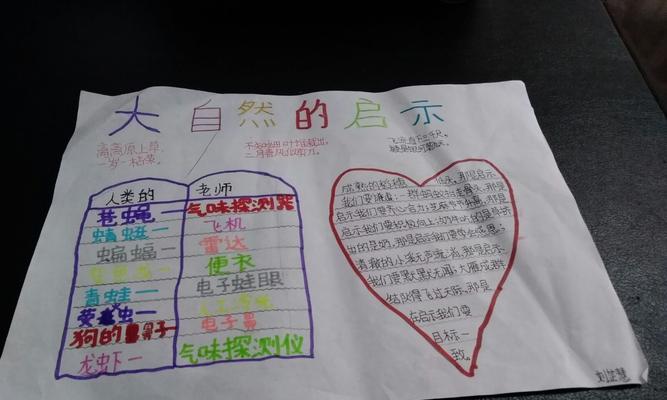 大自然的启示
离离原上草,
一岁一枯荣。
不知细叶谁裁出,
二月春风似剪刀。
飞流直下三千尺,
疑是银河落九天。
人类的 老师
苍蝇一 气味探测器
蜻蜓一 飞机
蝙蝠一 雷达
便衣
青蛙一 电子蛙眼
萤火虫一
狗的鼻子 电子鼻
龙虾一 气味探测仪
成熟的稻穗 低头,那是启示
我们要谦虚;一群蚂蚁
启示我们要齐心合力;
启示我们要积极向上;
出的是奶,那是启示我们要学会感恩;
清澈的小溪无声流淌,那是启示
我们要默默无闻;大雁成群
结队得飞过天际,那是
在启示我们要
目标一
致。